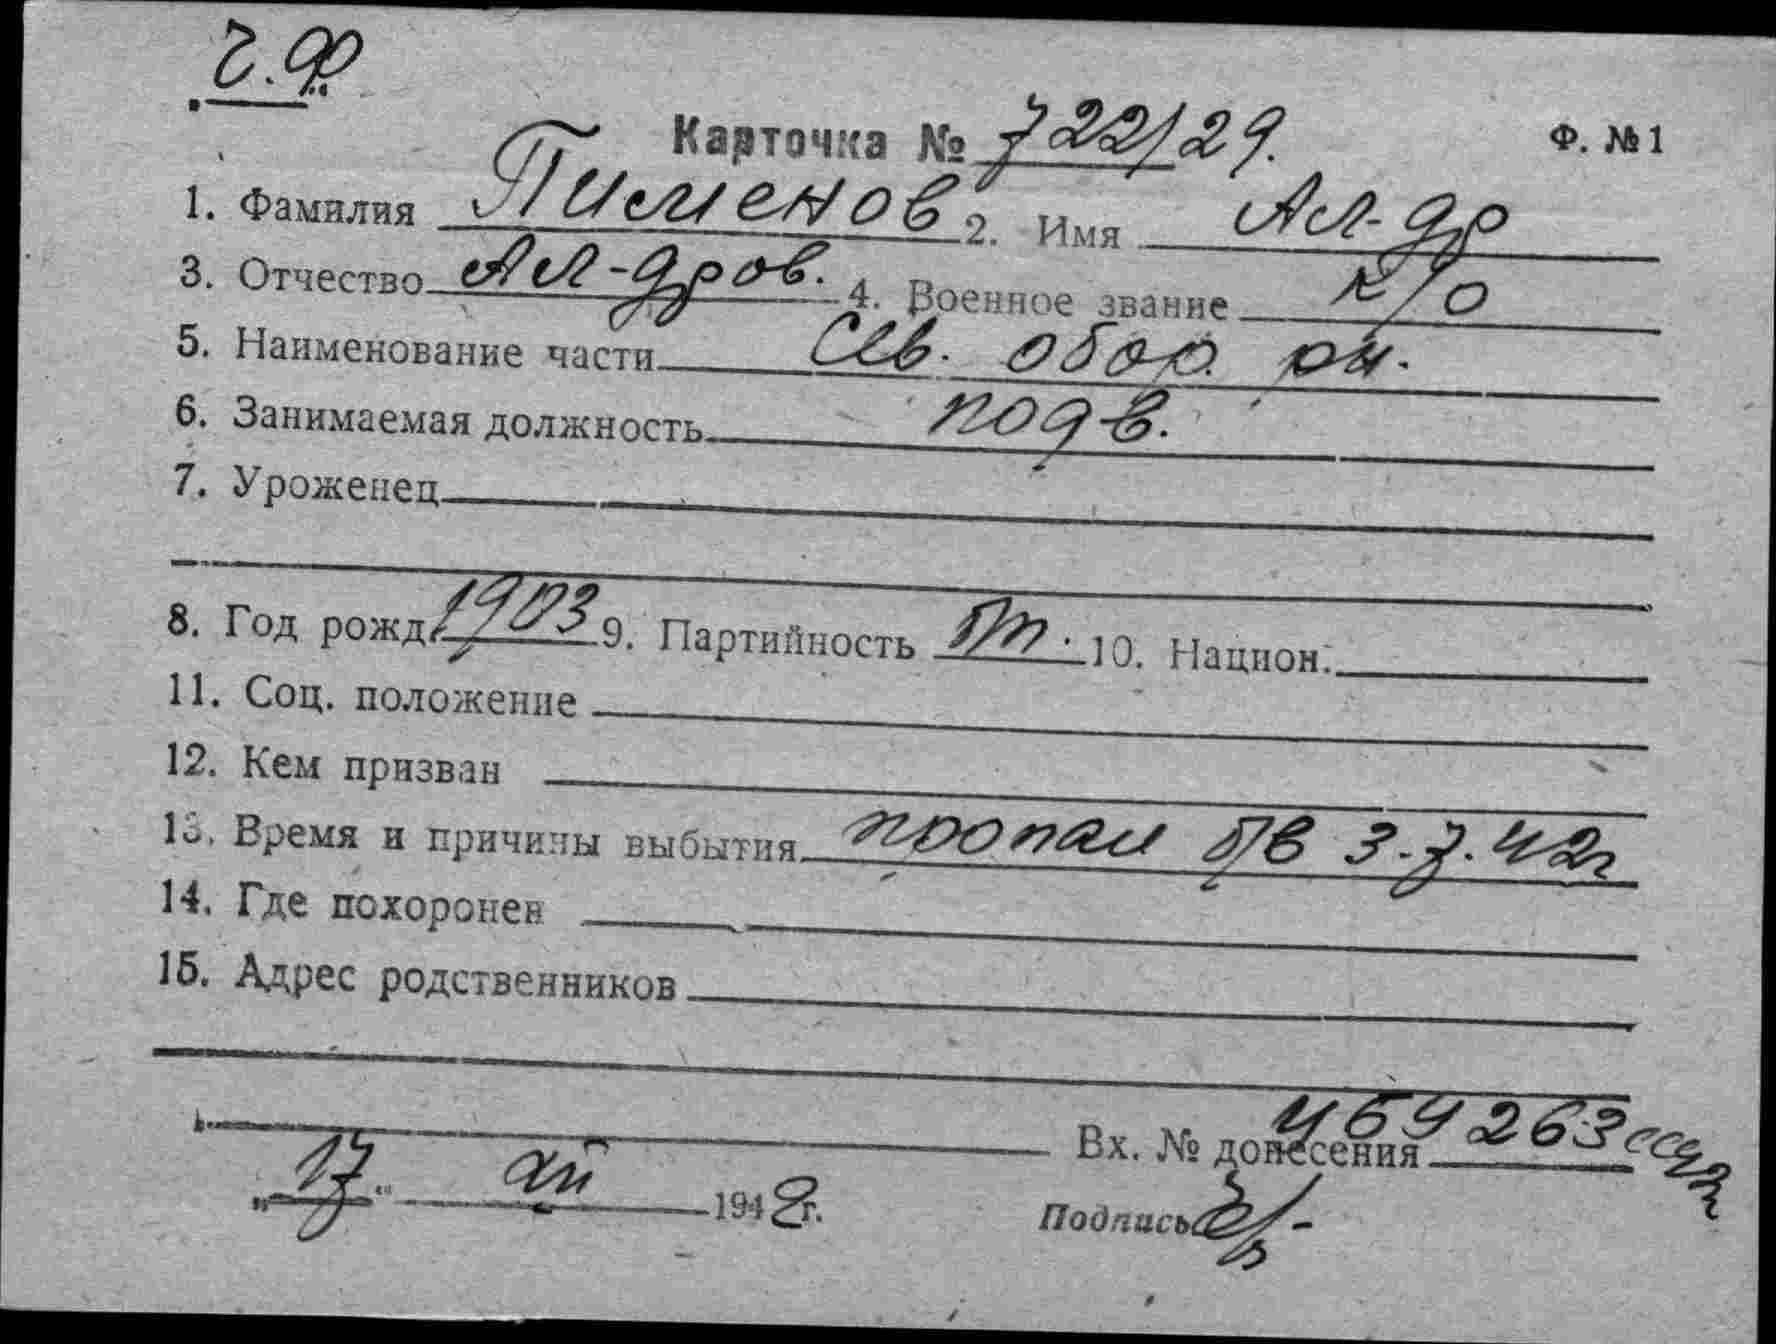 Ч.Ф.
Карточка № 722/29. Ф. №1
1. Фамилия Пименов 2. Имя Ал-др
3. Отчество Ал-дров. 4. Военное звание к/о
5. Наименование части Сев. обор. рн.
6. Занимаемая должность подв.
7. Уроженец
8. Год рожд. 1903 9. Партийность б/п. 10. Национ.
11. Соц. положение
12. Кем призван
13. Время и причины выбытия пропал б/в 3.7.42г
14. Где похоронен
15. Адрес родственников
Вх. № донесения 469263
„17“ XII 1948г. Подпись